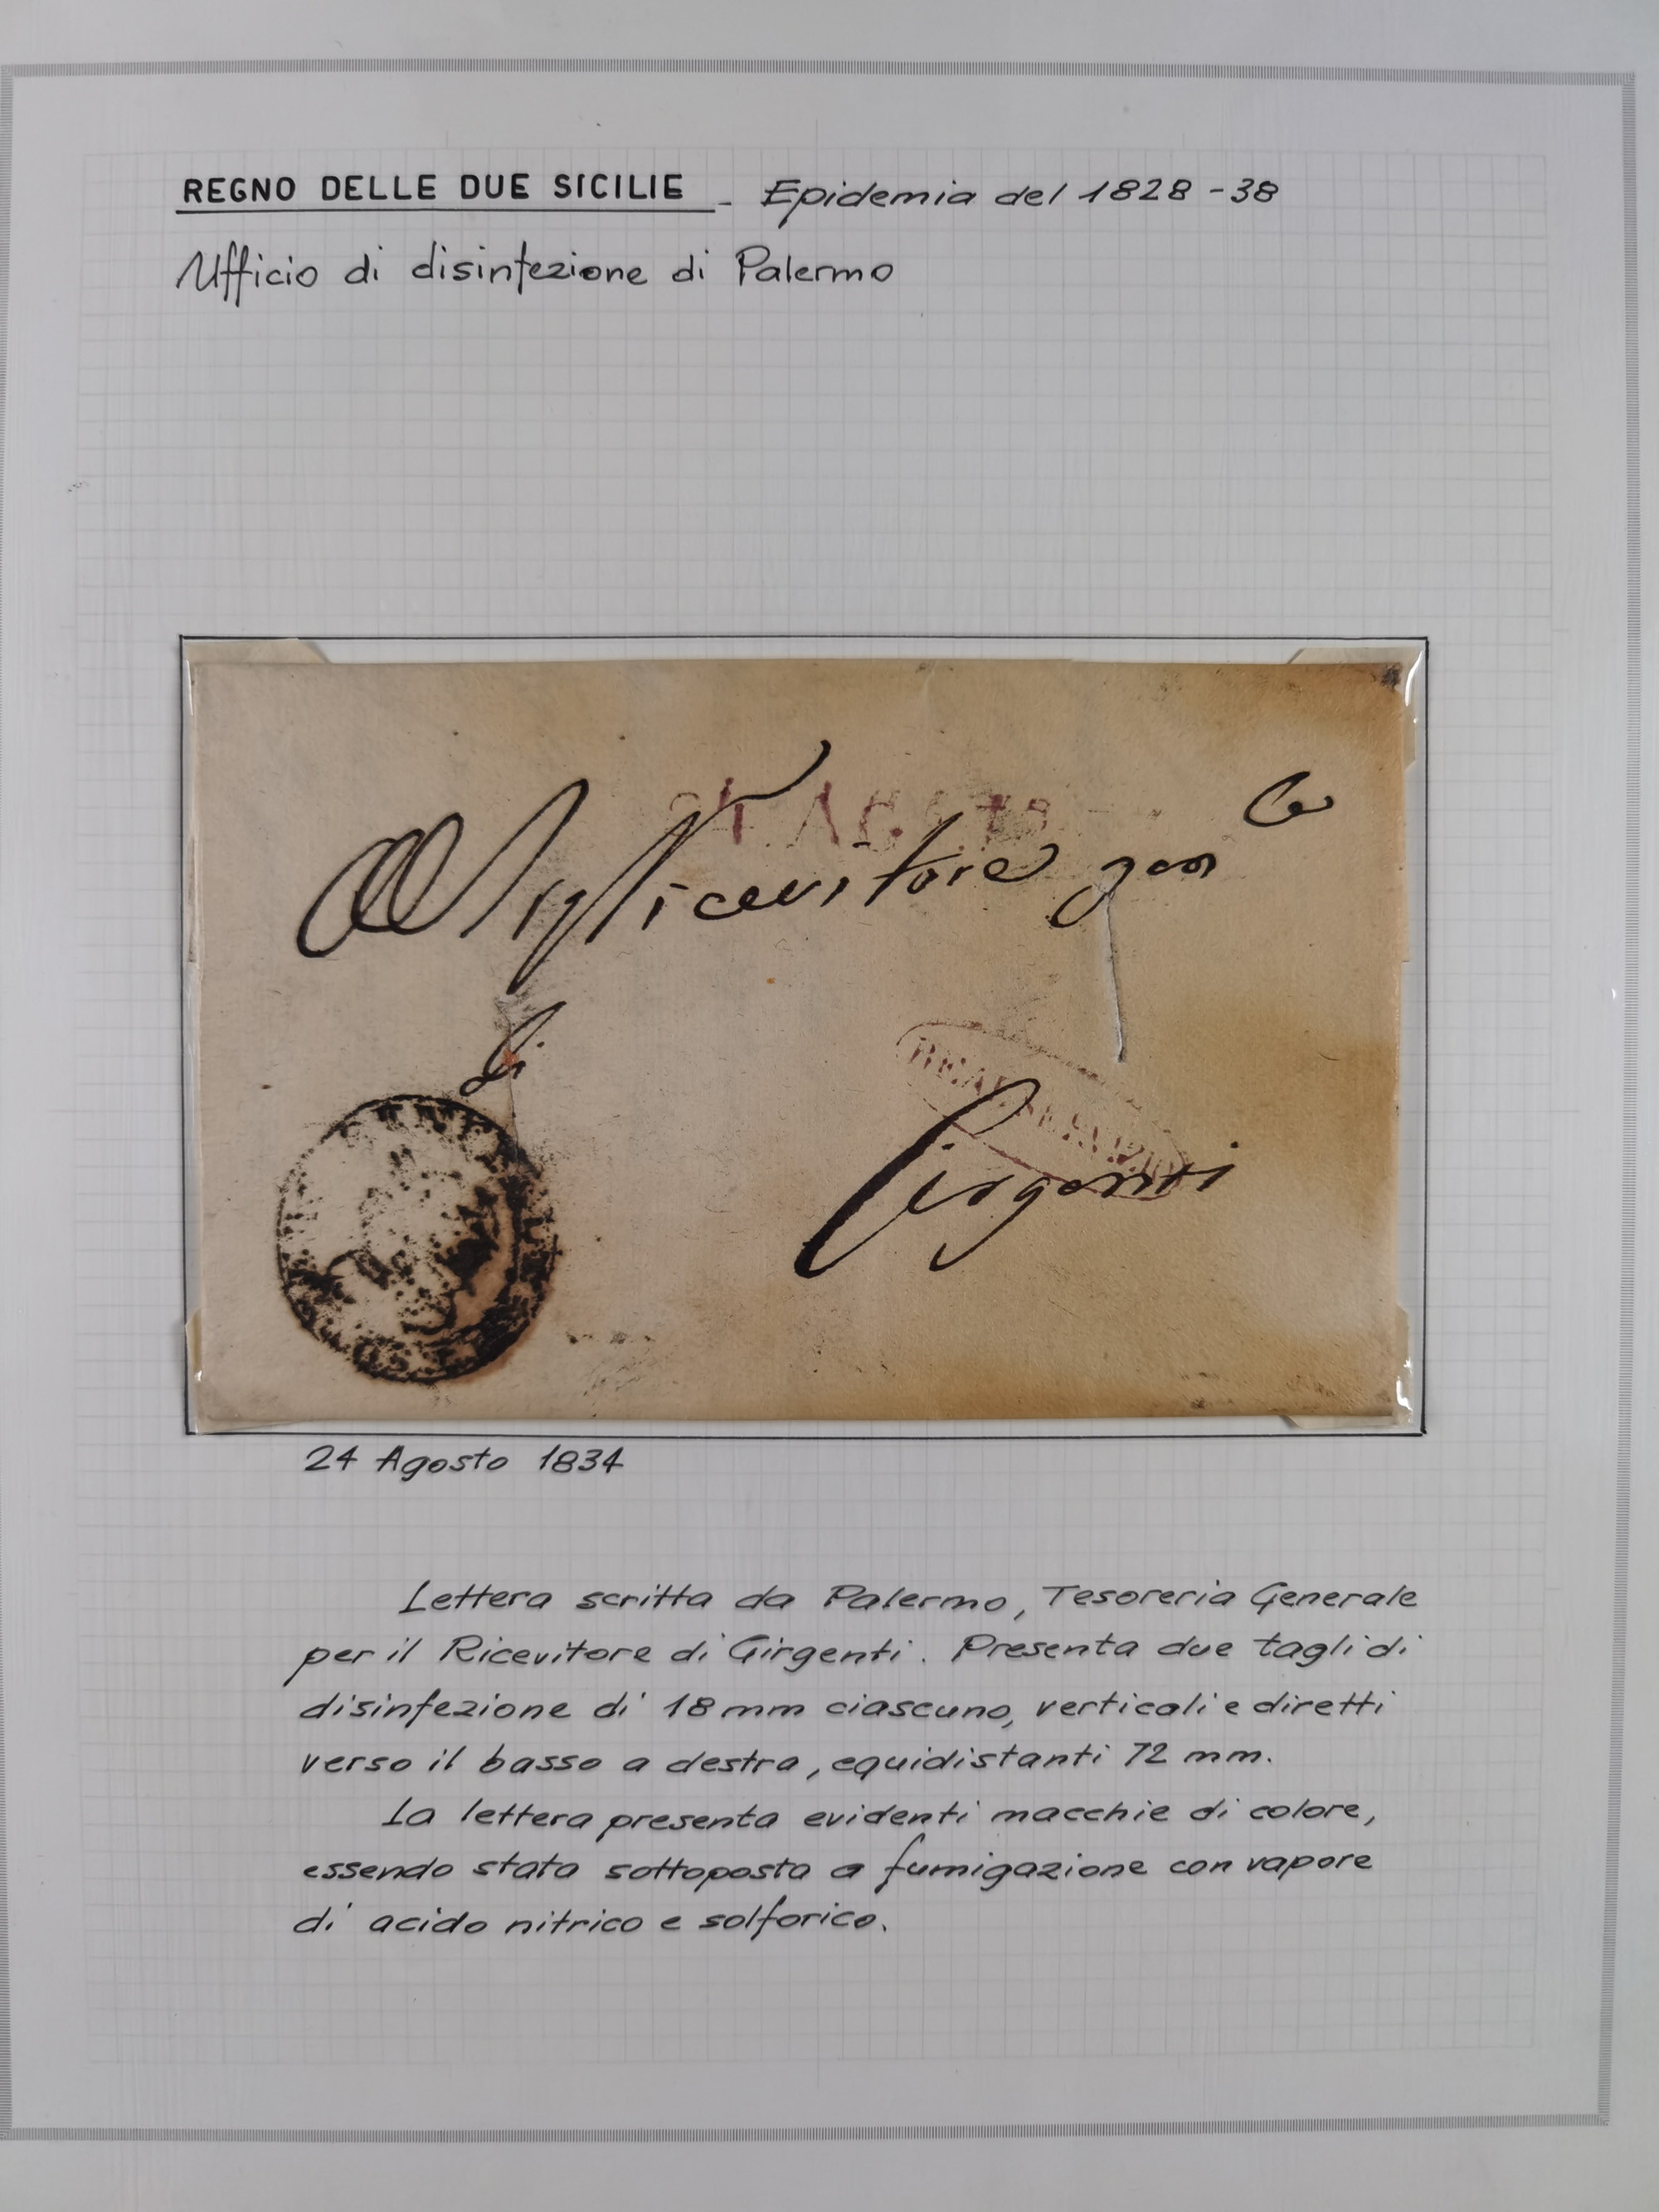 REGNO DELLE DUE SICILIE - Epidemia del 1828-38
Ufficio di disinfezione di Palermo
24 AGOSTO
Al Sig Ricevitore gen le
di
Girgenti
24 Agosto 1834
Lettera scritta da Palermo, Tesoreria Generale
per il Ricevitore di Girgenti. Presenta due tagli di
disinfezione di 18 mm ciascuno, verticali e diretti
verso il basso a destra, equidistanti 72 mm.
La lettera presenta evidenti macchie di colore,
essendo stata sottoposta a fumigazione con vapore
di acido nitrico e solforico.